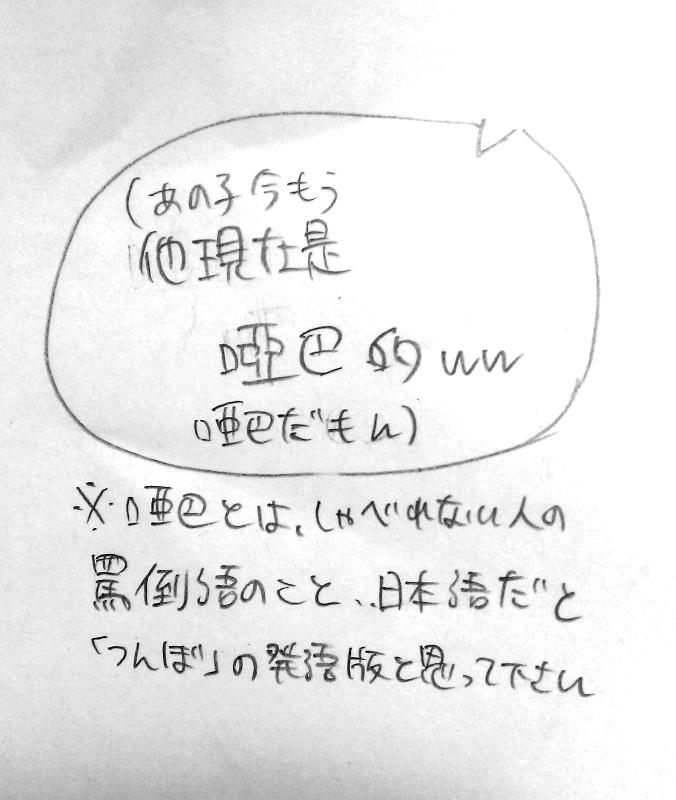 (あの子今もう
他現在是
啞巴的ww
啞巴だもん)
※啞巴とは、しゃべれない人の
罵倒語のこと、日本語だと
「つんぼ」の発語版と思って下さい